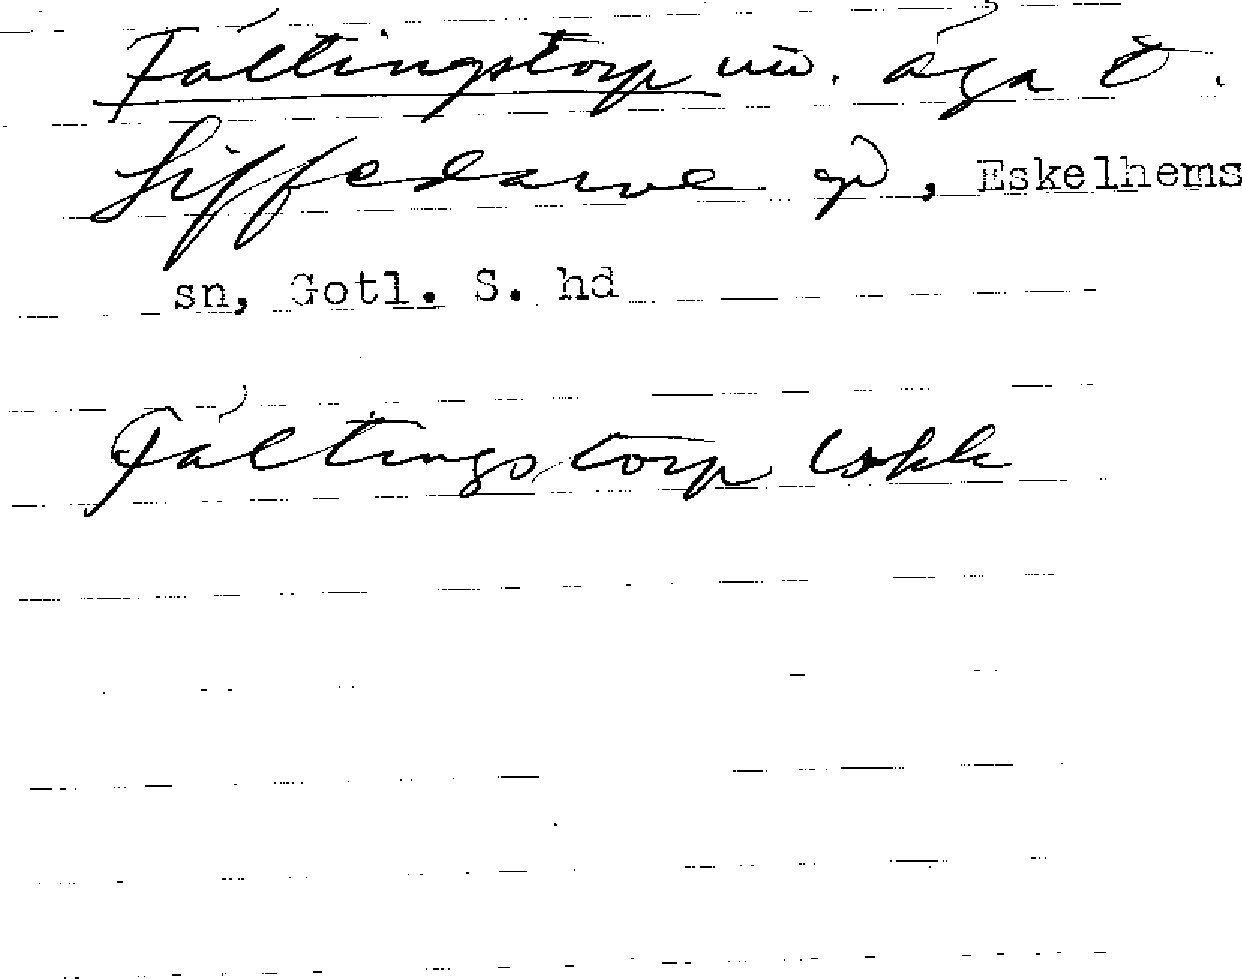 Fältingstorp nu. äga Ö.
Siffedarve gd, Eskelhems
sn, Gotl. S. hd
Fältingstorp